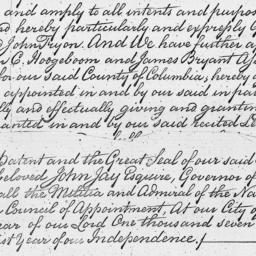 and amply to all intents and purpos
nd hereby particularly and expressly
d John Tryon. And We have further a
n C. Hogeboom and James Bryant
for our said County of Columbia, hereby
appointed in and by our said in pa
lly and effectually giving and grantin
anted in and by our said recited Le
Patent and the Great Seal of our said
beloved John Jay Esquire, Governor of
all the Militia and Admiral of the Na
Council of Appointment, At our City of
ear of our Lord One thousand and seven
ist Year of our Independence.